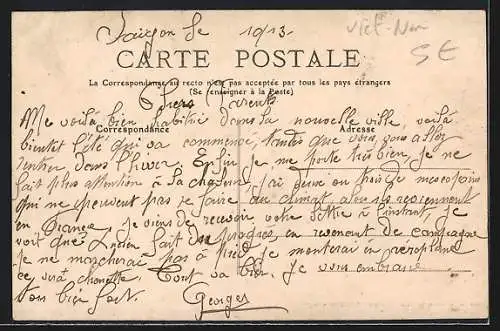 Saigon le 1913.
Viet-Nam
5E
CARTE POSTALE
La Correspondance au recto n'est pas acceptée par tous les pays étrangers
(Se renseigner à la Poste)
Chers Parents
Me voilà bien habitué dans la nouvelle ville, voilà
Correspondance
Adresse
bientôt l'été qui va commencer, tandis que vous vous aller
rentrer dans l'hiver. Enfin je me porte très bien, je ne
fait plus attention à la chaleur, j'ai deux ou trois de mes copains
qui ne peuvent pas se faire au climat alors ils reviennent
en France, je viens de recevoir votre lettre à l'instant, je
voit que fait des progrès, en revenant de campagne
je ne marcherai pas à pied je monterai en aéroplane
ce sera chouette. Tout va bien. Je vous embrasse
tous bien fort.
Georges